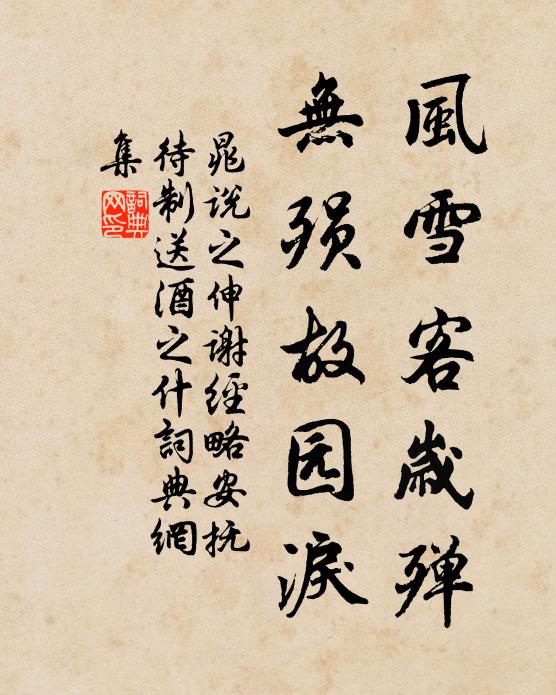 風雪客歲殫
無殞故园淚
晁説之伸謝經略安抚
待制送酒之什詞典網
集
詞典网印